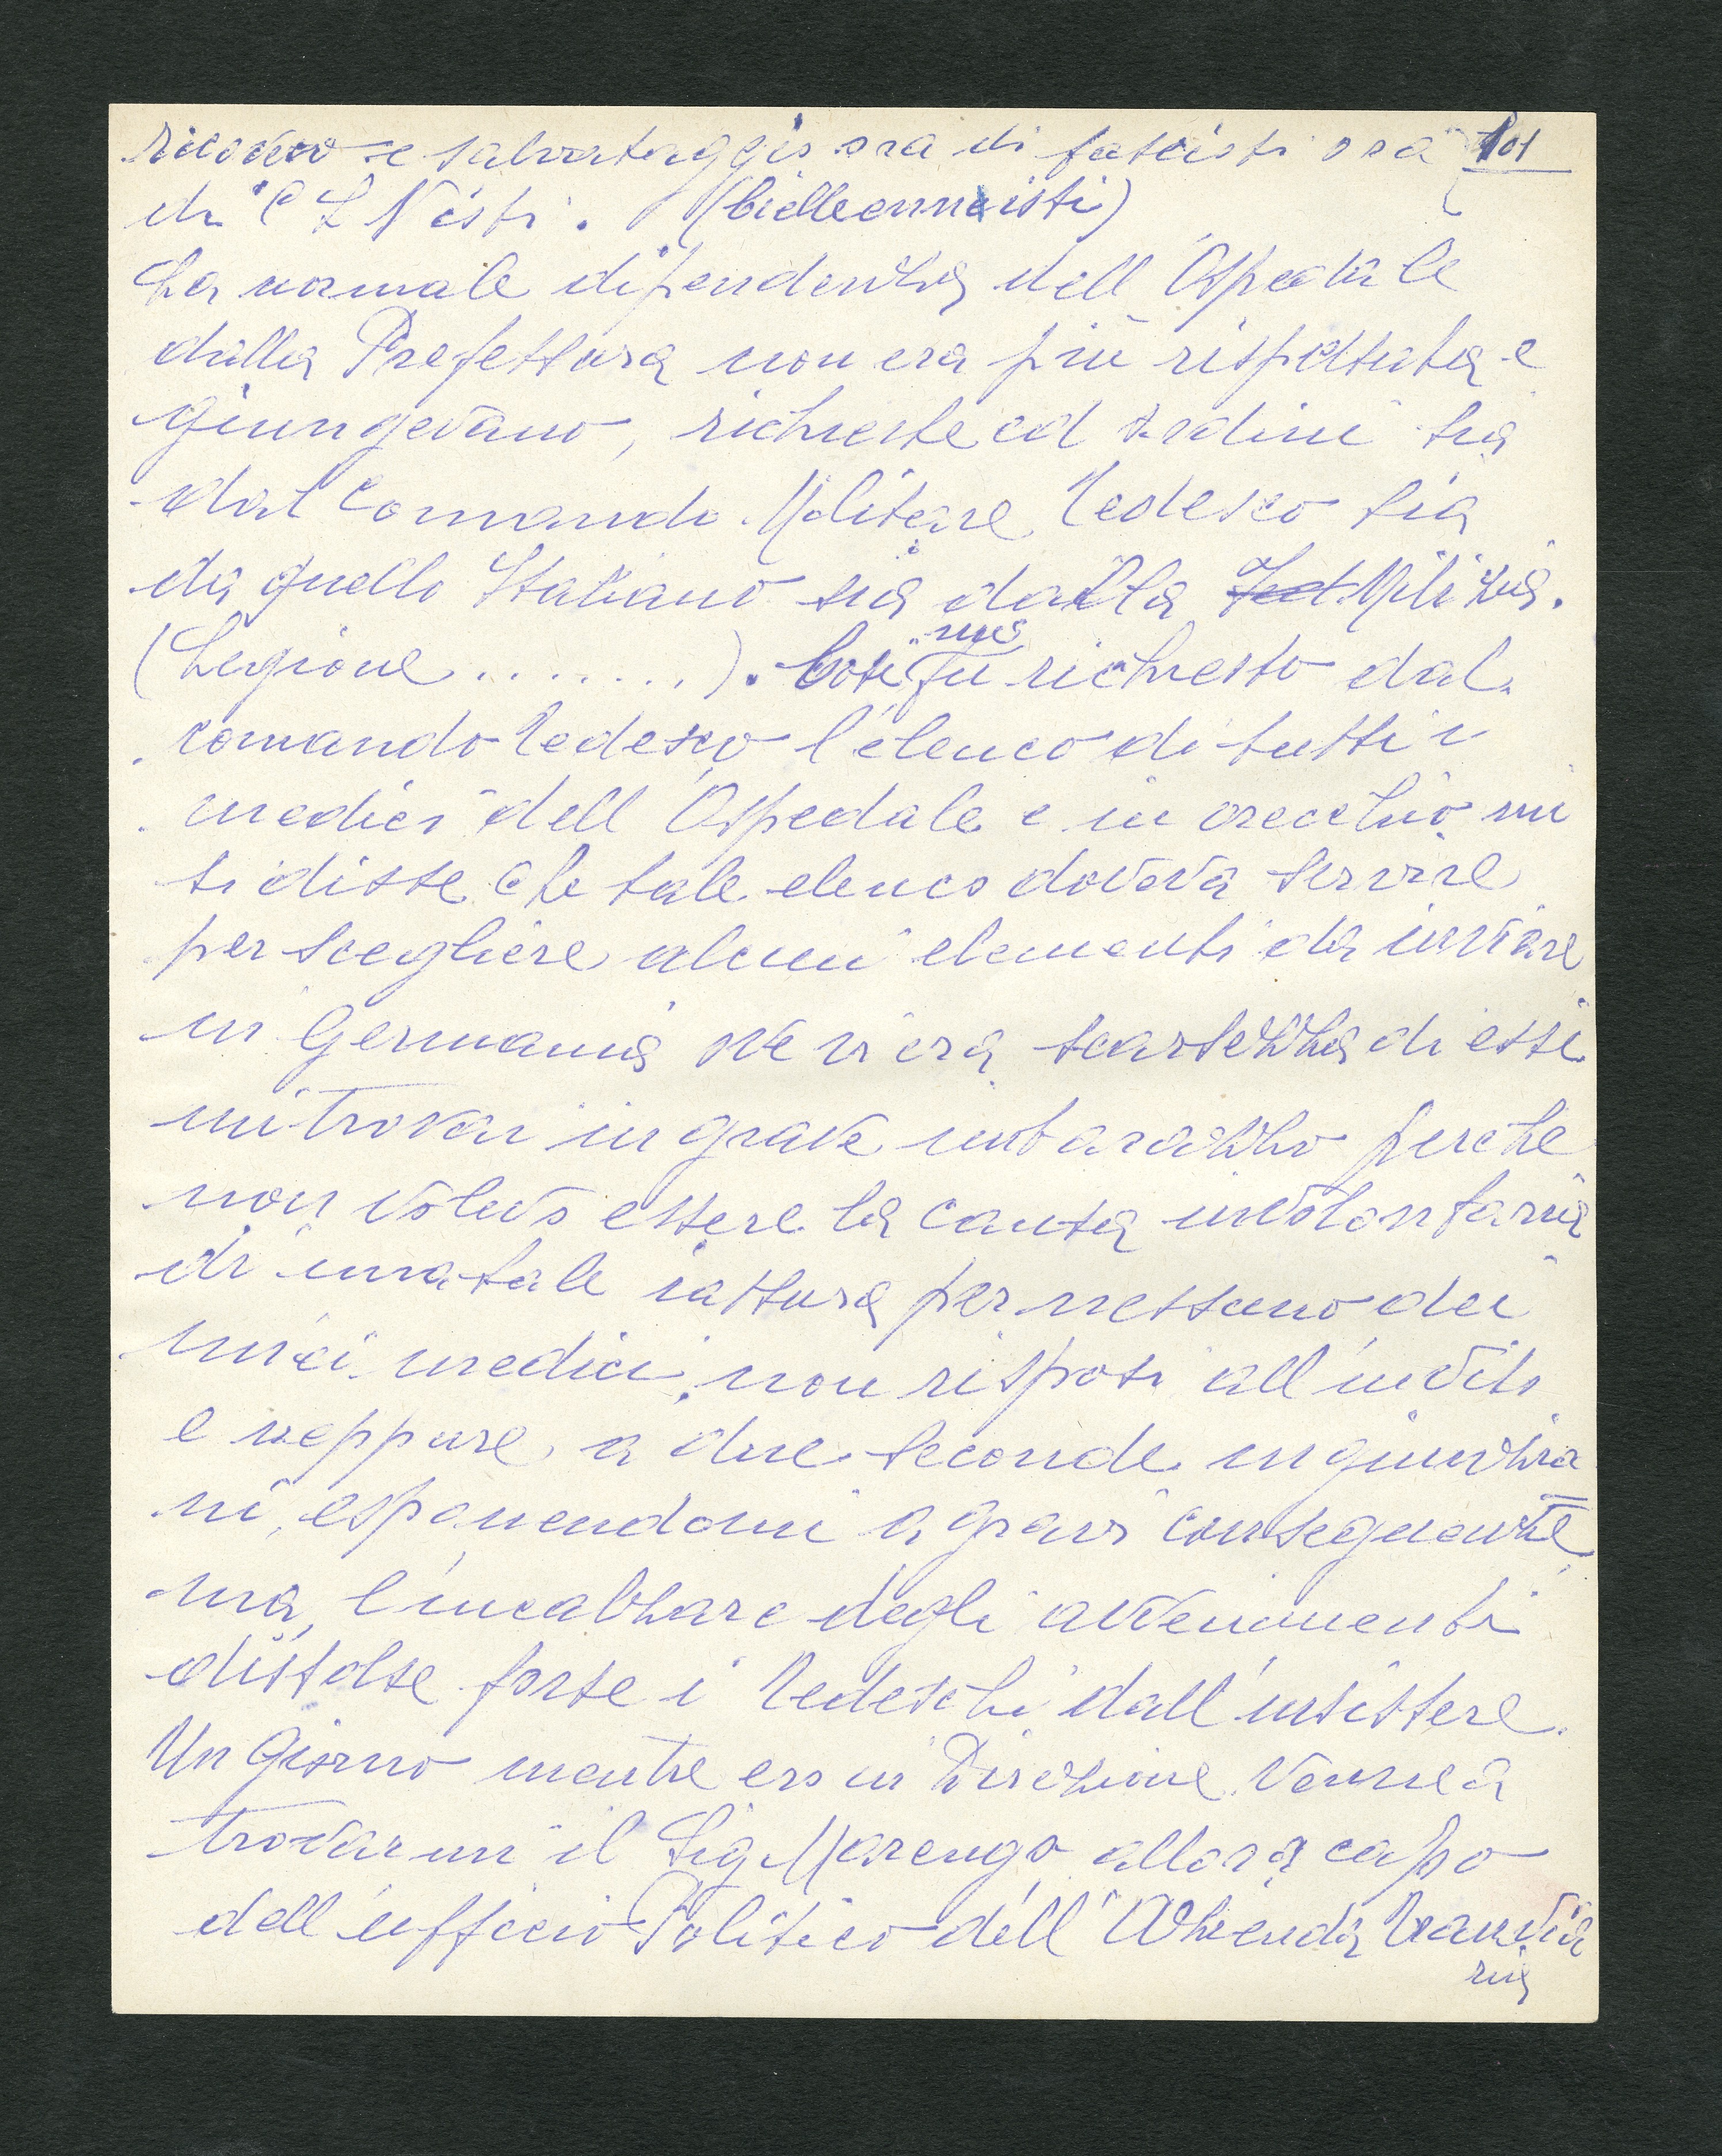 ricovero e salvataggio ora di fascisti ora 101
di C L Nisti. (bielleennisti)
La normale dipendenza dell'Ospedale
dalla Prefettura non era più rispettata e
giungevano, richieste ed ordini sia
dal Comando Militare Tedesco sia
da quello Italiano sia dalla Milizia.
(Legione ........). Così me
fu richiesto dal
comando Tedesco l'elenco di tutti i
medici dell'Ospedale e in orecchio mi
si disse che tale elenco doveva servire
per scegliere alcuni elementi da inviare
in Germania ove vi era scarsezza di essi
mi trovai in grave imbarazzo perche
non volevo essere la causa involontaria
di una tale iattura per nessuno dei
miei medici, non risposi all'invito
e neppure a due seconde ingiunzio
ni, esponendomi a gravi conseguenze
ma, l'incalzare degli avvenimenti
distolse forse i Tedeschi dall'insistere.
Un giorno mentre ero in Direzione venne a
trovarmi il Sig Marengo allora capo
dell'ufficio Politico dell'Azienda Tranvia
ria